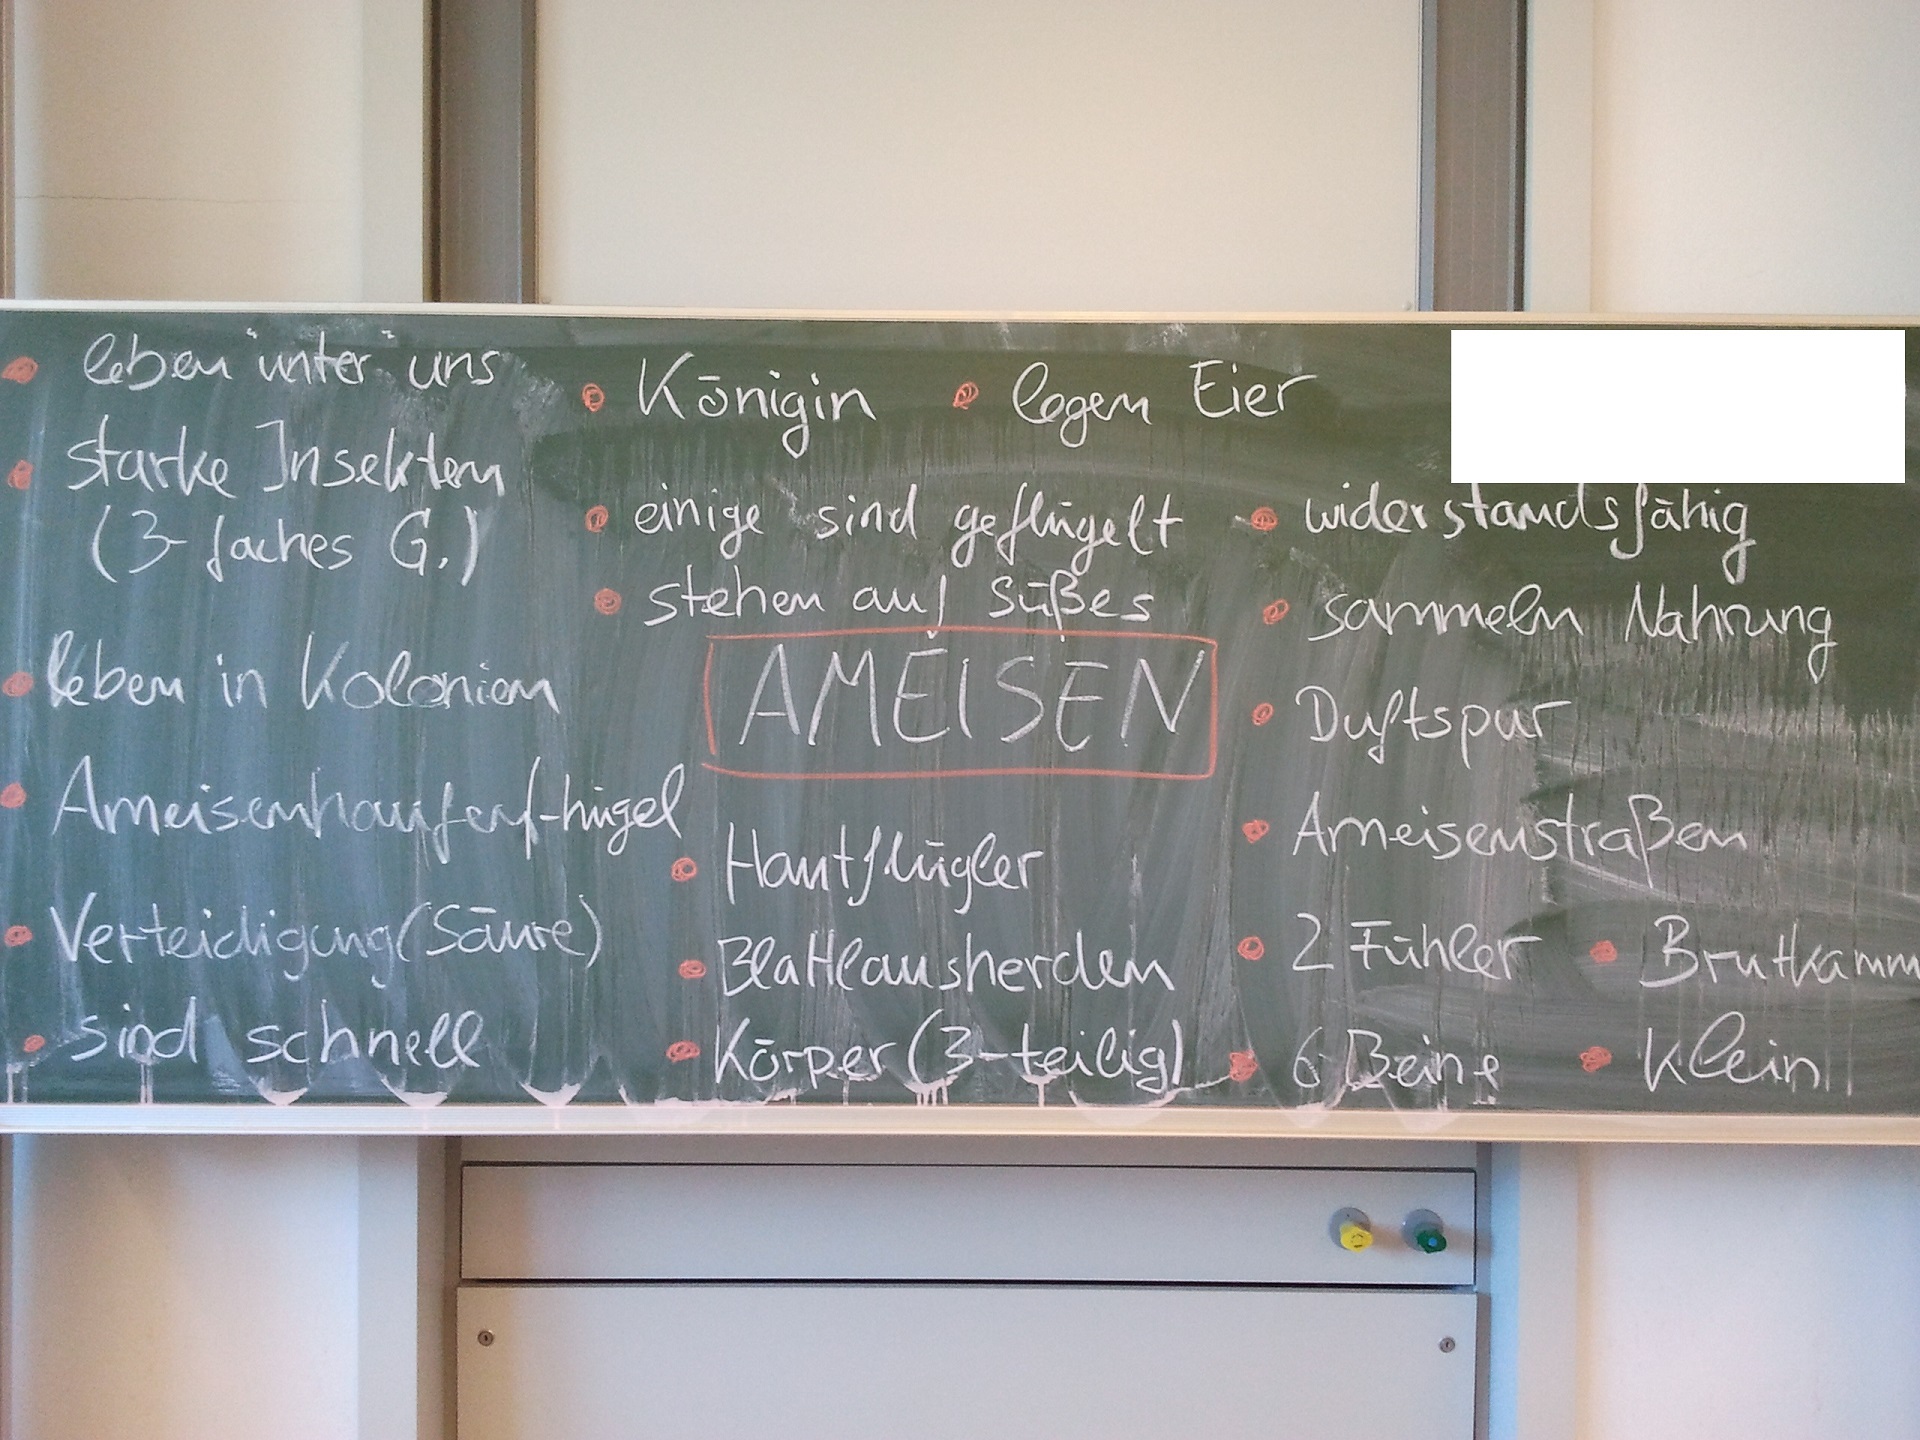 leben "unter" uns
starke Insekten
(3-faches G.)
leben in Kolonien
Ameisenhaufen/-hügel
Verteidigung (Säure)
sind schnell
Königin
legen Eier
einige sind geflügelt
stehen auf Süßes
AMEISEN
Hautflügler
Blattlausherden
Körper (3-teilig)
widerstandsfähig
sammeln Nahrung
Duftspur
Ameisenstraßen
2 Fühler
Brutkamm
6 Beine
Klein